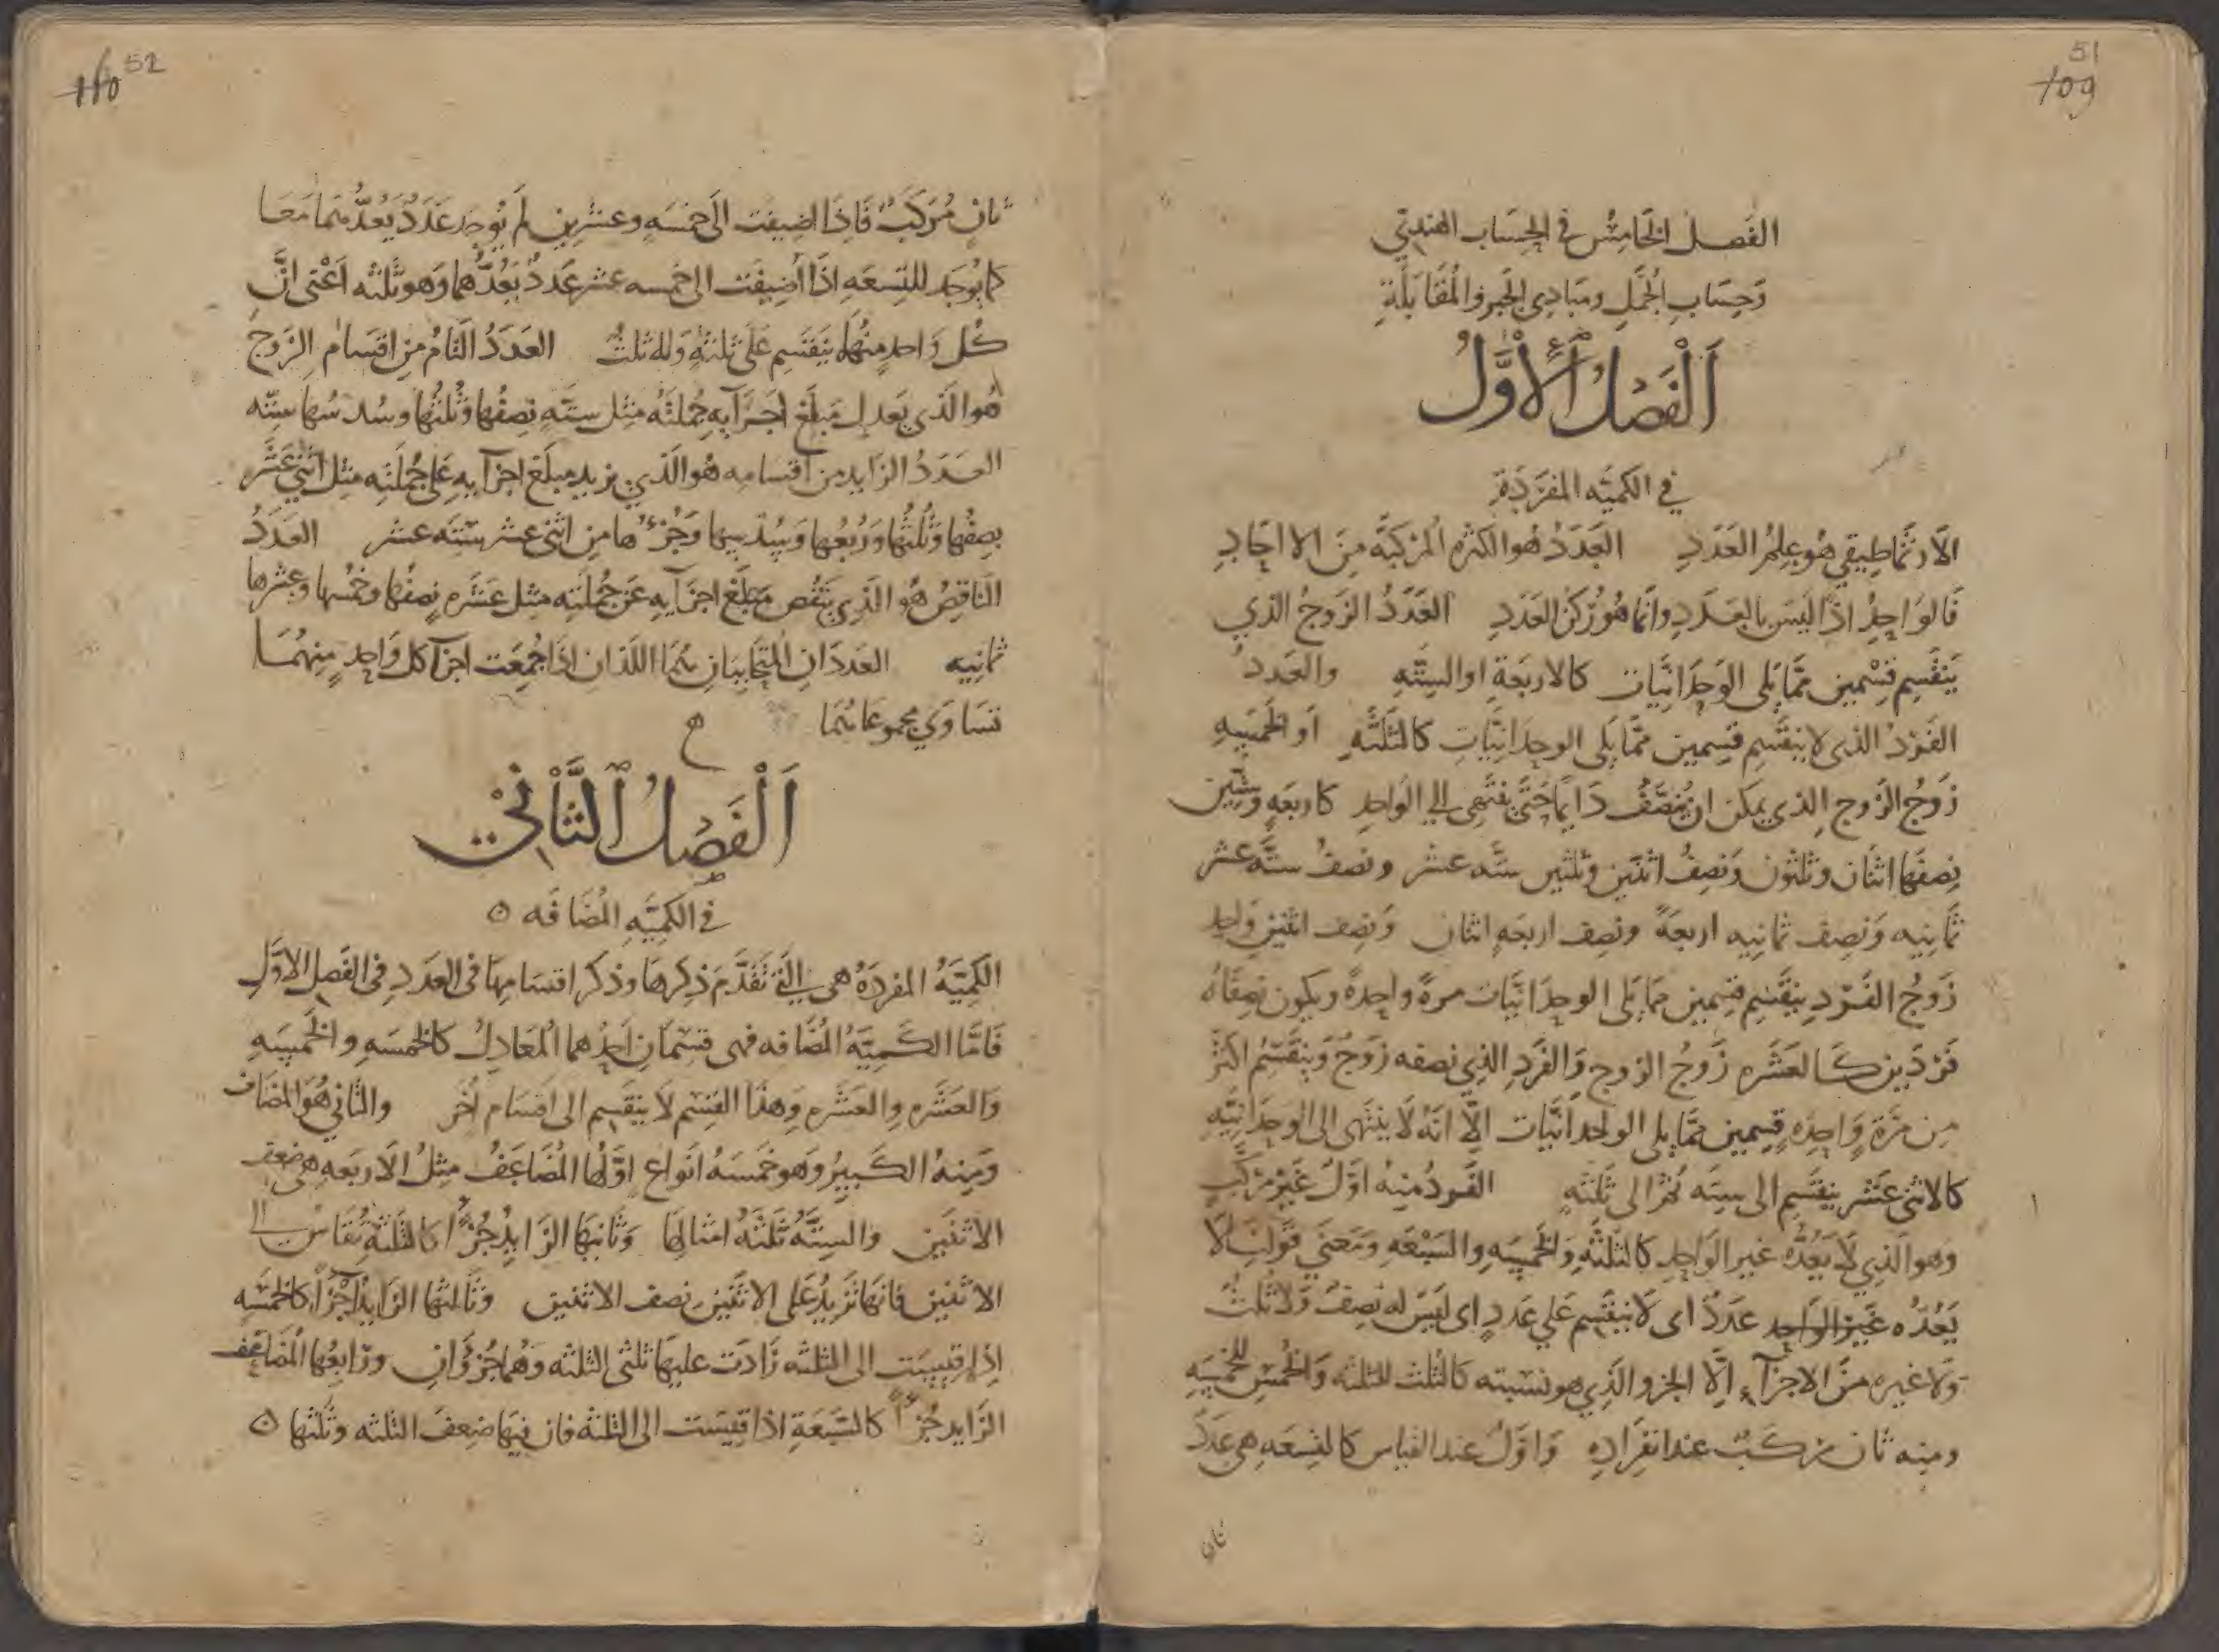 51
109
الفَصل الخَامِسُ في الحِسَاب الهندِيّ
وَحِسَابِ الجُمَّلِ ومَبَادِي الجَبرِ والمُقَابَلَةِ
اَلْفَصْلُ ٱلْأَوَّلُ
في الكميَّه المفرَدَةِ
الاَرثمَاطِيقي هُو عِلمُ العَدَدِ العَدَدُ هُو الكثره المُركبَّه مِنَ الاحَادِ
فَالوَاحِدُ اذًا ليَسَ بالعَدَدِ وانَّمَا هُوَ رُكنُ العَدَدِ العَدَدُ الزَوجُ الذي
يَنقَسِم قِسْمين ممَّا يَلى الوَحدَانيَّات كالاربَعَةِ او السِتَّهِ والعَدد
الفَرْدُ الذى لا ينقَسِم قسِمين ممَّا يَلى الوحدَانيَّاتِ كالثَلثَهِ اَو الخَمسِهِ
زَوجُ الزَوجِ الذي يمكن ان يُنَصَّفَ دَايمًا حَتَّى ينتَهِى الي الوَاحِدِ كاربعَهٍ وَستِّين
نِصفُهَا اثنَان وثلثُون وَنصِفُ اثنَين وثلثين ستَّه عشر ونصفُ ستَّه عشر
ثمَانِيه وَنصِف ثمانِيه اربعَةٌ ونصِف اربعَهٍ اثنان وَنصِف اثنين وَاحِد
زَوجُ الفَرْدِ ينقَسِم قسِمين ممَا يَلى الوحدَانيَّات مرةً واحِدةً ويكون نِصفَاهُ
فَرْدَين كَالعَشَره زَوجُ الزوجِ وَالفَردِ الذِي نصفه زَوجٌ وَينقَسِمُ اكثَرَ
مِن مَرَّةٍ وَاحِدَةٍ قِسِمين ممَّا يلى الوحدَانيَّات الَّا انهُ لَا ينتَهى الى الوحدَانيَّهِ
كالاثنى عَشَر ينقَسِم الى سِتَه ثُمَّ الى ثَلثَهٍ الفَردُ مِنهُ اوَّلٌ غَيرُ مركَّبٍ
وَهو الذِي لَا يَعُدُّه غير الوَاحِدِ كالثَلثَهِ وَالخمسِه والسَبْعَهِ ومَعنَي قَولنَا لَا
يَعُدُه غَيرُ الوَاحِد عَدَدٌ اى لَا ينقَسِم عَلي عَددٍ اى ليَسَ له نصِفٌ وَلَا ثلثٌ
وَلَا غيره منَ الاجزآء الَّا الجزو الذِي هو نسَبته كالثُلث للثلثه وَالخُمسِ للخمسِهِ
ومنِه ثان مركَّبٌ عند انفِرَادِه وَاوَّلٌ عند القيَاس كالتِسعَهِ هى عَددٌ
ثان
52
110
ثانٍ مُرَكَّبٌ فَاِذَا اضِيفَت الىَ خمسَهٍ وعشرين لَم يُوجَد عَدَدٌ يَعُدُّهمَا مَعَا
كما يُوجَد للتِسعَهِ اذَا اُضِيفَت الى خمسه عشر عَددٌ يَعُدُّهما وَهو ثلثَه اَعْنى انَّ
كُل وَاحدٍ منهُما يَنقَسِم عَلَى ثلثَهٍ وَله ثلثٌ العَدَدُ التَامُّ مِن اقسَام الزَوجِ
هُو الَّذى يَعدِل مَبلَغ اَجزَآيهِ جُملَتَه مثِل ستَّهٍ نِصفُها وَثُلثُها وسُدسُها ستِّه
العَدَدُ الزَايد من اقسَامِه هُو الَّذي يزيد مبلَغ اجزآيهِ عَلى جُملَته مثِل اثني عَشَر
نصِفُها وَثُلثُها وَرُبعُها وَسُدسُها وَجُزْءُها مِن اثنى عشر سِتَّه عشر العَدَدُ
النَاقِصُ هُو الذِي يَنقُص مَبلَغ اجزآيه عَن جُملَتِه مثل عَشَره نصفُها وخُمسُها وعُشرها
ثمانِيه العَددَانِ المتحَابَّانِ هُمَا اللذَان اذَا جُمِعَت اجزآ كل وَاحِدٍ منِهُمَا
تسَاوَي مجموعَاهُمَا
اَلْفَصْلُ ٱلثَّانِي
في الكمِيَّهِ المُضَافَه
الكَمِيَّهُ المفردَهُ هى الَتي تَقَدَّمَ ذِكرهَا وذكر اقسَامِهَا فى العَدَدِ فى الفَصلِ الاوَّلِ
فَامَّا الكَمِيَّهُ المُضَافه فهى قِسمَانِ احَدُهما المُعَادِلُ كالخمسَهِ والخَمسِهِ
وَالعَشَرهِ والعَشَرهِ وَهذَا القِسَم لَا ينقَسِم الى اقسَام اُخَر والثاني هُوَ المُضَاف
وَمِنهُ الكَبيرُ وَهو خمَسهُ انوَاع اوَّلها المُضَاعَفُ مثلُ الاَربَعهِ هى ضعِف
الاثنَين والسِتَّهُ ثَلثَهُ امثالِهَا وَثَانيهَا الزَايدُ جُزْءًا كالثلثَهِ تُقَاسُ الى
الاثنين فانهَا تزيدُ عَلى الاثنين نصف الاثنين وثَالثُها الزَايدُ اَجْزَاءً كالخمسَهِ
اِذا قِيسَت الى الثلثه زَادَت عليهَا ثلثى الثلثه وهُما جُزؤانِ ورَابعُها المُضَاعَف
الزَايد جُزءًا كالسَبعَةِ اذا قِيسَت الى الثلثه فان فيهَا ضِعفَ الثلثه وثُلثها